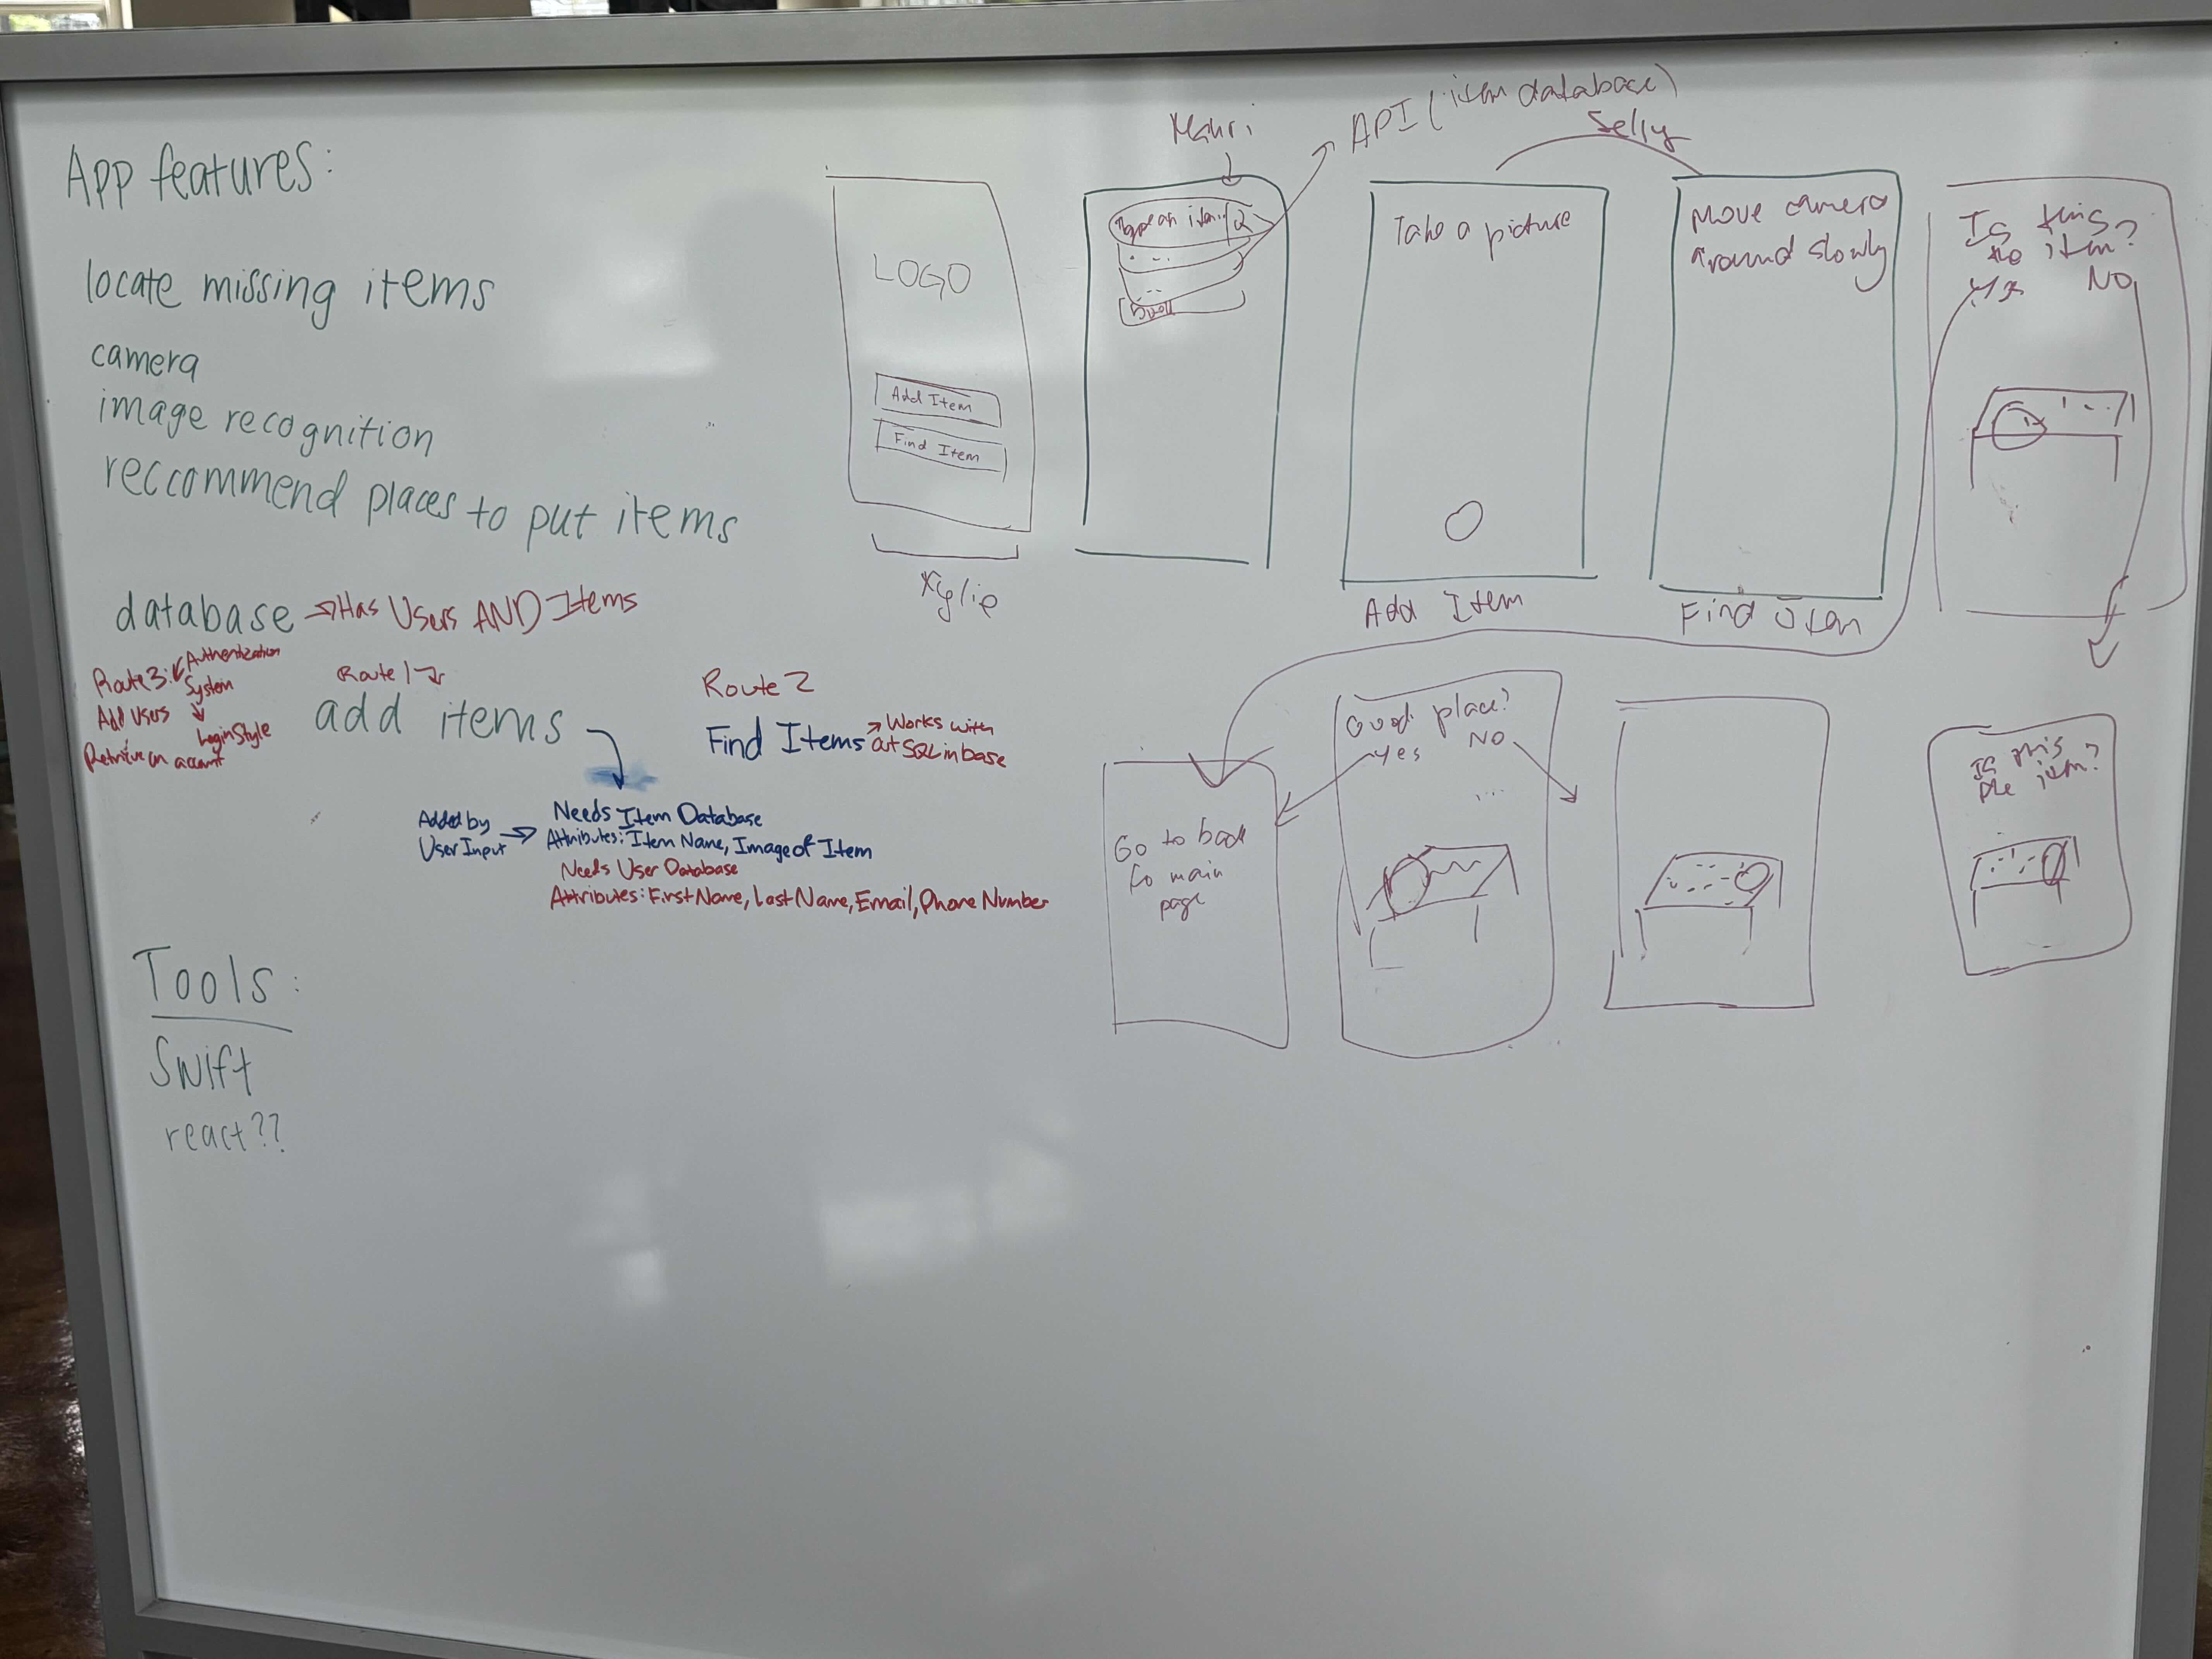 App features:
locate missing items
camera
image recognition
reccommend places to put items
database → Has Users AND Items
Route 3: ↙ Authentication
System
Add Users
Login Style
Retrieve an account
Route 1
add items
Route 2
Find Items → Works with
at SQL in base
Added by
User Input →
Needs Item Database
Attributes: Item Name, Image of Item
Needs User Database
Attributes: First Name, Last Name, Email, Phone Number
Tools:
Swift
react??
LOGO
Add Item
Find Item
Kylie
API (item database)
Selly
Type an item
Take a picture
Add Item
Move camera
around slowly
Find Item
Is this
the item?
Yes NO
Go to back
to main
page
Good place?
Yes NO
Is this
the item?